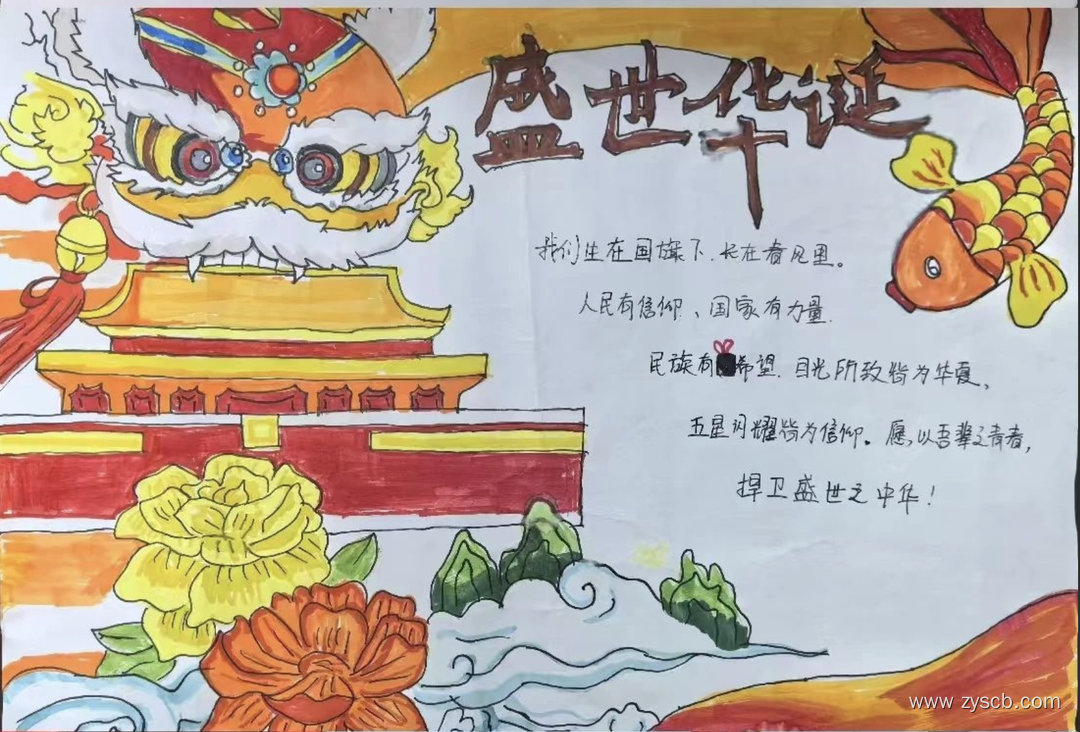 盛世华诞
我们生在国旗下、长在春风里。
人民有信仰、国家有力量.
民族有希望.目光所致皆为华夏、
五星闪耀皆为信仰。愿以吾辈之青春,
捍卫盛世之中华!
www.zyscb.com